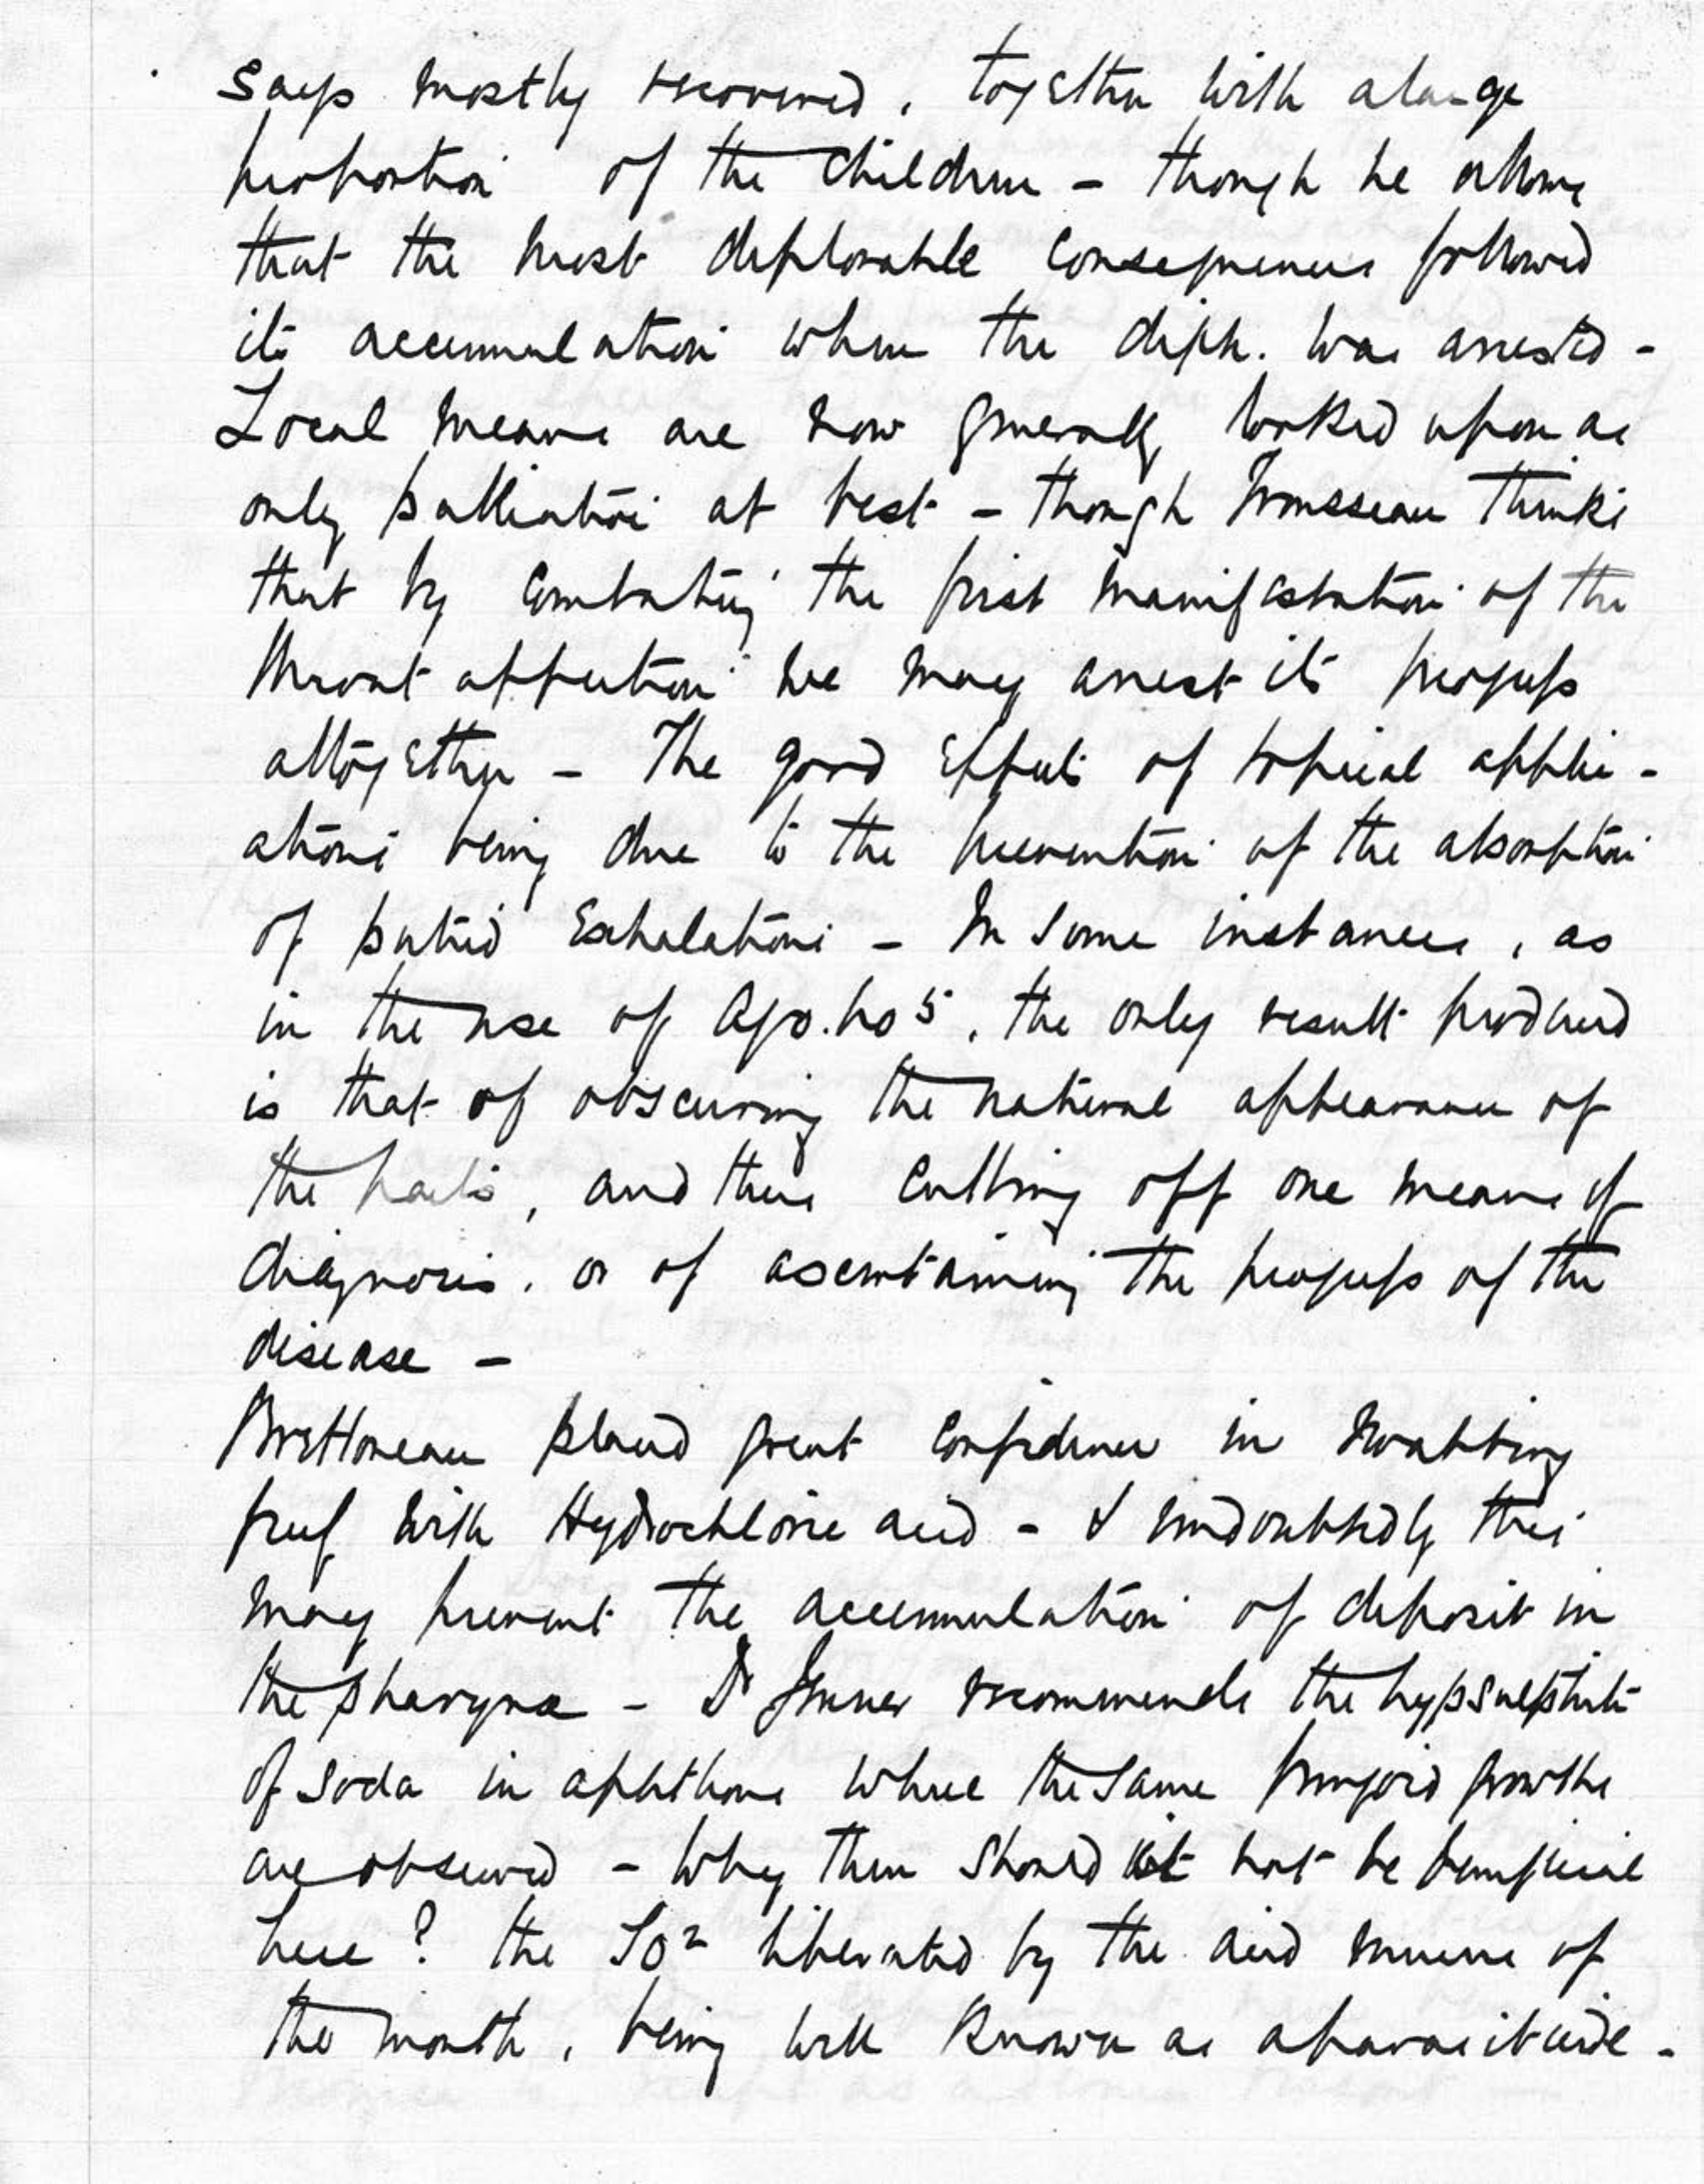 says mostly recovered, together with a large
proportion of the children - though he allows
that the most deplorable consequences followed
its accumulation when the diph. was arrested -
Local means are now generally looked upon as
only palliative at best - though Trousseau thinks
that by combating the first manifestation of the
throat affection we may arrest its progress
altogether - The good effects of topical applic-
ations being due to the prevention of the absorption
of putrid exhalations - In some instances, as
in the use of AgO.NO5, the only result produced
is that of obscuring the natural appearance of
the parts, and thus cutting off one means of
diagnosis, or of ascertaining the progress of the
disease -
Brettoneau placed great confidence in swabbing
freely with Hydrochloric acid - & undoubtedly this
may prevent the accumulation of deposit in
the pharynx - Dr Jenner recommends the hyposulphite
of soda in aphthous where the same fungoid growths
are observed - Why then should it not be beneficial
here? the SO2 liberated by the acid mucus of
the mouth, being well known as a parasiticide -